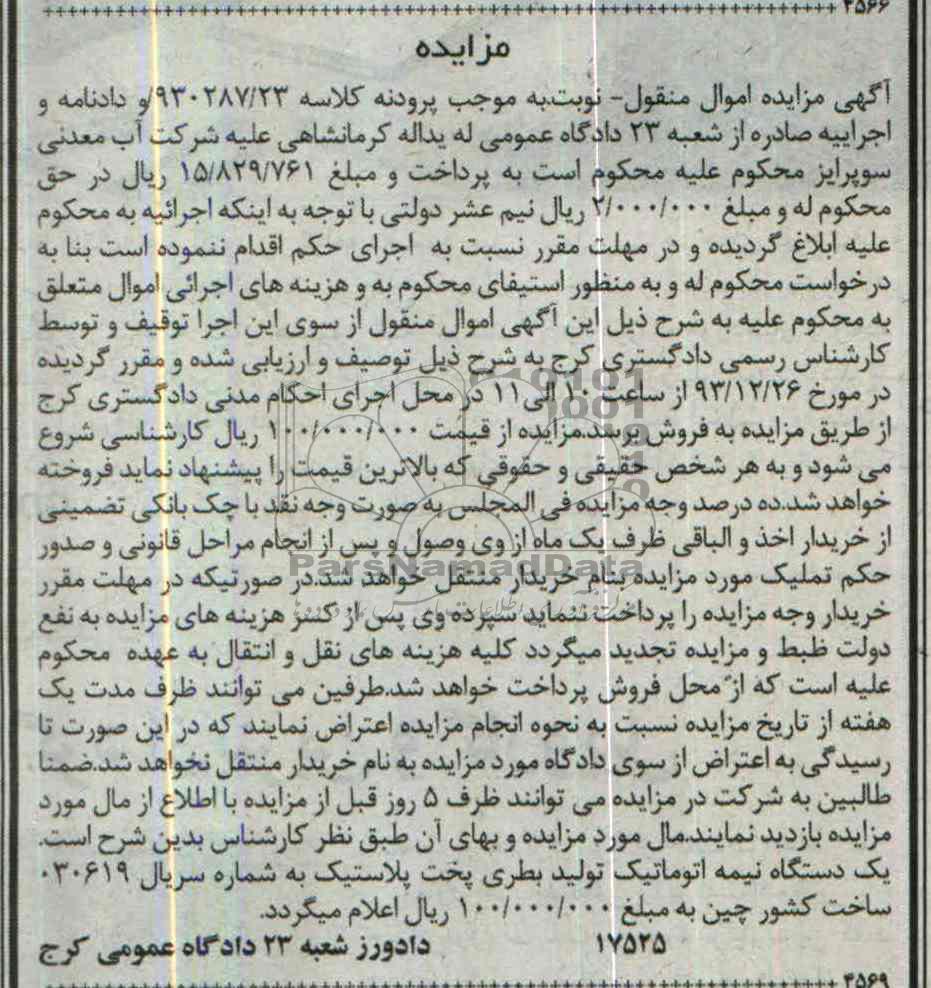 ۳۵۶۶
مزایده
آگهی مزایده اموال منقول- نوبت.به موجب پرودنه کلاسه ۹۳۰۲۸۷/۲۳/و دادنامه و
اجراییه صادره از شعبه ۲۳ دادگاه عمومی له یداله کرمانشاهی علیه شرکت آب معدنی
سوپرایز محکوم علیه محکوم است به پرداخت و مبلغ ۱۵/۸۲۹/۷۶۱ ریال در حق
محکوم له و مبلغ ۲/۰۰۰/۰۰۰ ریال نیم عشر دولتی با توجه به اینکه اجرائیه به محکوم
علیه ابلاغ گردیده و در مهلت مقرر نسبت به اجرای حکم اقدام ننموده است بنا به
درخواست محکوم له و به منظور استیفای محکوم به و هزینه های اجرائی اموال متعلق
به محکوم علیه به شرح ذیل این آگهی اموال منقول از سوی این اجرا توقیف و توسط
کارشناس رسمی دادگستری کرج به شرح ذیل توصیف و ارزیابی شده و مقرر گردیده
در مورخ ۹۳/۱۲/۲۶ از ساعت ۱۰ الی ۱۱ در محل اجرای احکام مدنی دادگستری کرج
از طریق مزایده به فروش برسد.مزایده از قیمت ۱۰۰/۰۰۰/۰۰۰ ریال کارشناسی شروع
می شود و به هر شخص حقیقی و حقوقی که بالاترین قیمت را پیشنهاد نماید فروخته
خواهد شد.ده درصد وجه مزایده فی المجلس به صورت وجه نقد با چک بانکی تضمینی
از خریدار اخذ و الباقی ظرف یک ماه از وی وصول و پس از انجام مراحل قانونی و صدور
حکم تملیک مورد مزایده بنام خریدار منتقل خواهد شد.در صورتیکه در مهلت مقرر
خریدار وجه مزایده را پرداخت ننماید سپرده وی پس از کسر هزینه های مزایده به نفع
دولت ظبط و مزایده تجدید میگردد کلیه هزینه های نقل و انتقال به عهده محکوم
علیه است که از محل فروش پرداخت خواهد شد.طرفین می توانند ظرف مدت یک
هفته از تاریخ مزایده نسبت به نحوه انجام مزایده اعتراض نمایند که در این صورت تا
رسیدگی به اعتراض از سوی دادگاه مورد مزایده به نام خریدار منتقل نخواهد شد.ضمنا
طالبین به شرکت در مزایده می توانند ظرف ۵ روز قبل از مزایده با اطلاع از مال مورد
مزایده بازدید نمایند.مال مورد مزایده و بهای آن طبق نظر کارشناس بدین شرح است.
یک دستگاه نیمه اتوماتیک تولید بطری پخت پلاستیک به شماره سریال ۰۳۰۶۱۹
ساخت کشور چین به مبلغ ۱۰۰/۰۰۰/۰۰۰ ریال اعلام میگردد.
۱۷۵۲۵ دادورز شعبه ۲۳ دادگاه عمومی کرج
۳۵۶۹
ParsNamadData